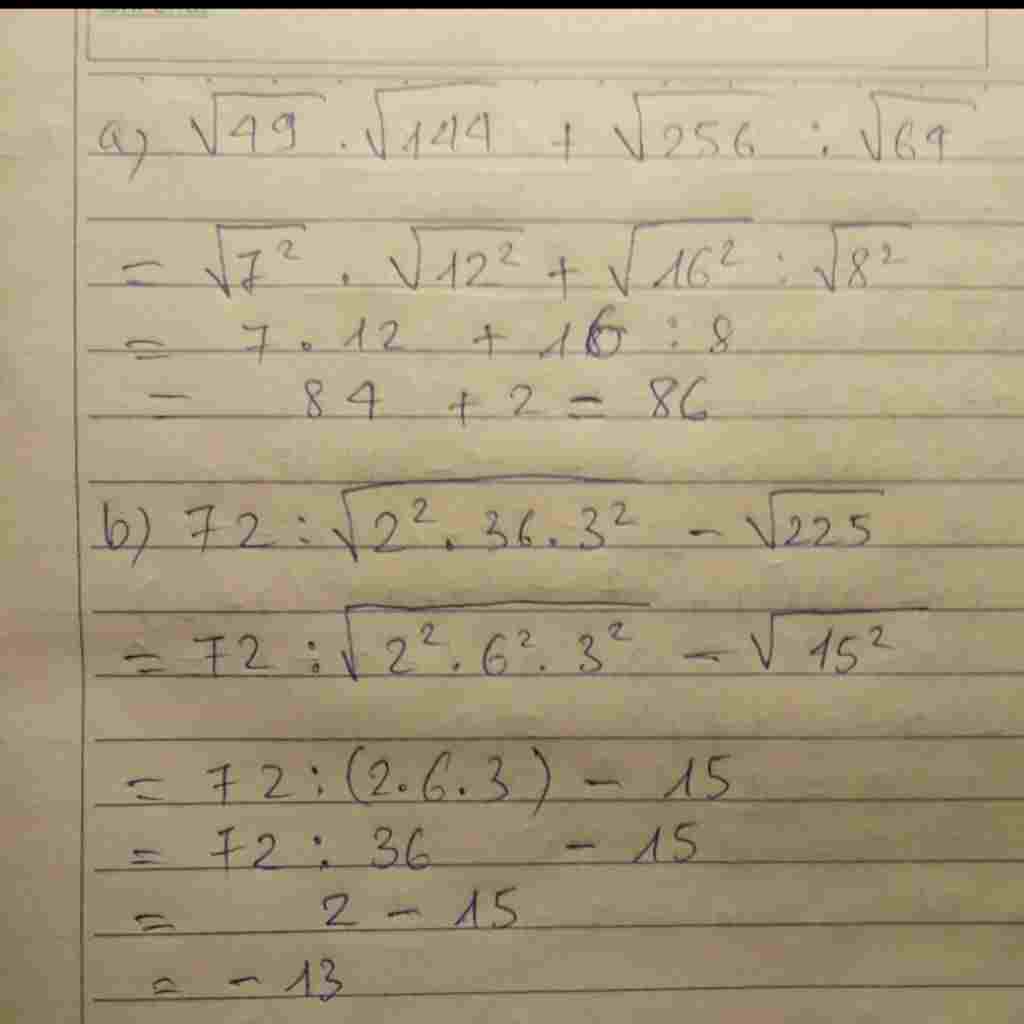 a) √49 . √144 + √256 : √64
= √7² . √12² + √16² : √8²
= 7 . 12 + 16 : 8
= 84 + 2 = 86
b) 72 : √2² . 36 . 3² - √225
= 72 : √2² . 6² . 3² - √15²
= 72 : (2.6.3) - 15
= 72 : 36 - 15
= 2 - 15
= - 13